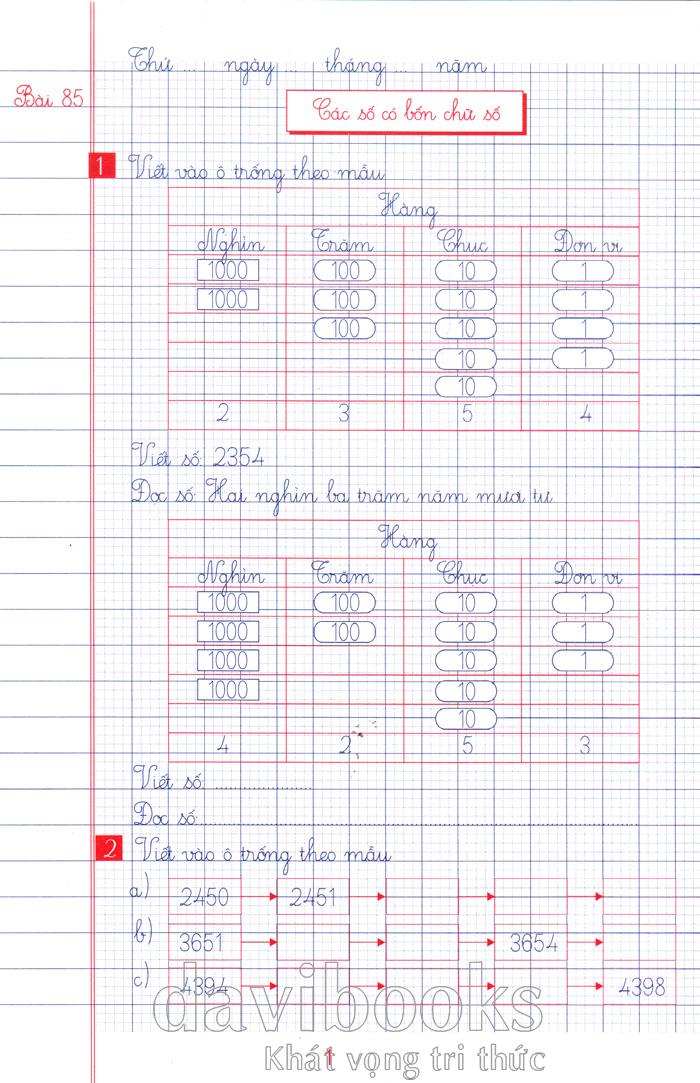 Thứ ... ngày ... tháng ... năm
Bài 85
Các số có bốn chữ số
1 Viết vào ô trống theo mẫu
Hàng
Nghìn Trăm Chuc Đơn vi
1000 100 10 1
1000 100 10 1
100 10 1
10 1
10
2 3 5 4
Viết số: 2354
Đọc số: Hai nghìn ba trăm năm mươi tư
Hàng
Nghìn Trăm Chục Đơn vị
1000 100 10 1
1000 100 10 1
1000 10 1
1000 10
10
4 2 5 3
Viết số: ....................
Đọc số: ....................
2 Viết vào ô trống theo mẫu
a) 2450 2451
b) 3651 3654
c) 4394 4398
davibooks
1
Khát vọng tri thức